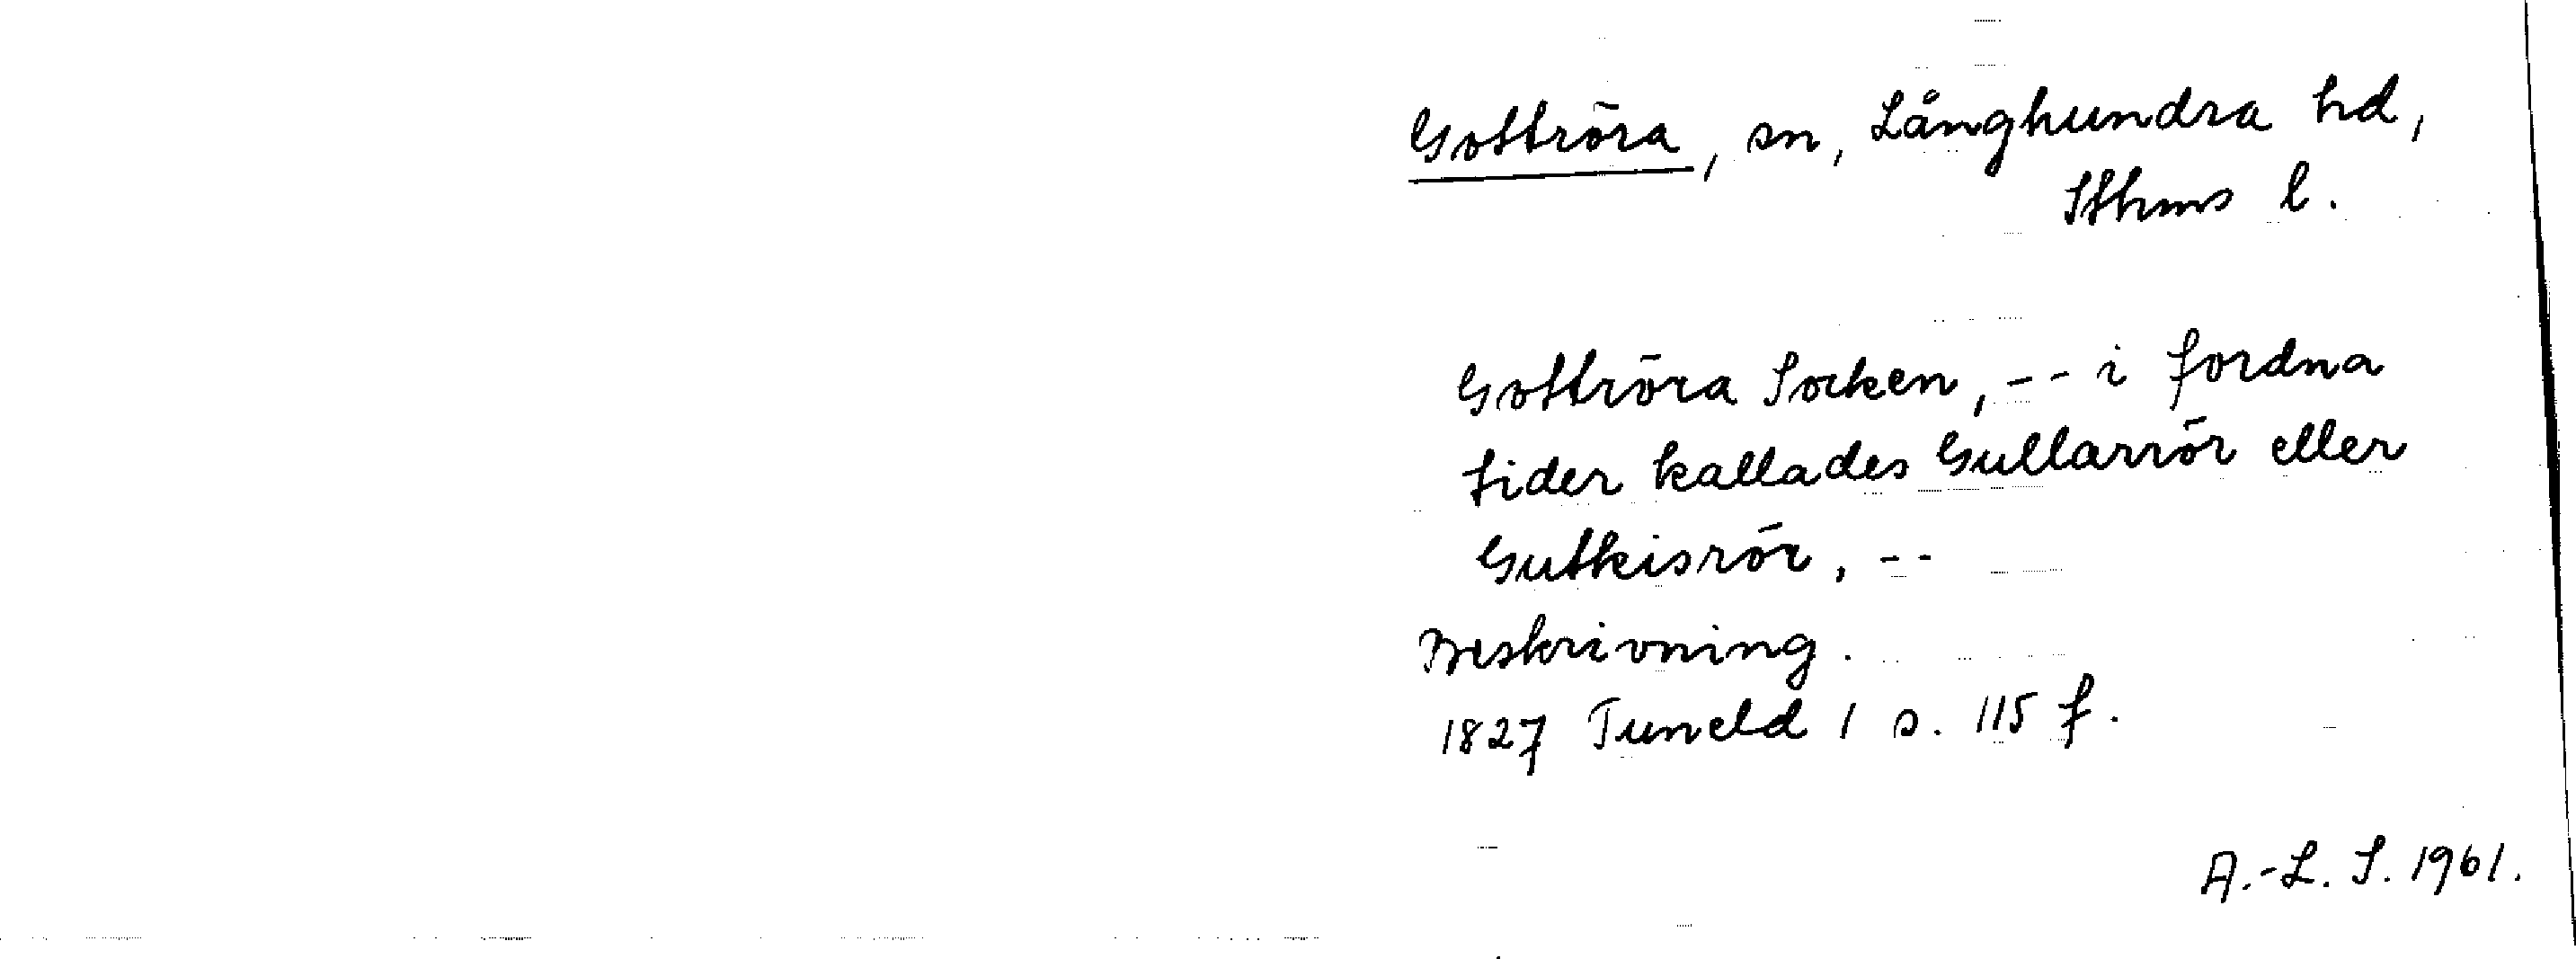 Gottröra, sn, Långhundra hd,
Sthms l.
Gottröra Socken, -- i fordna
tider kallades Gullarrör eller
Gutkisrör, --
Beskrivning.
1827 Tuneld 1 s. 115 f.
A.-L. S. 1961.